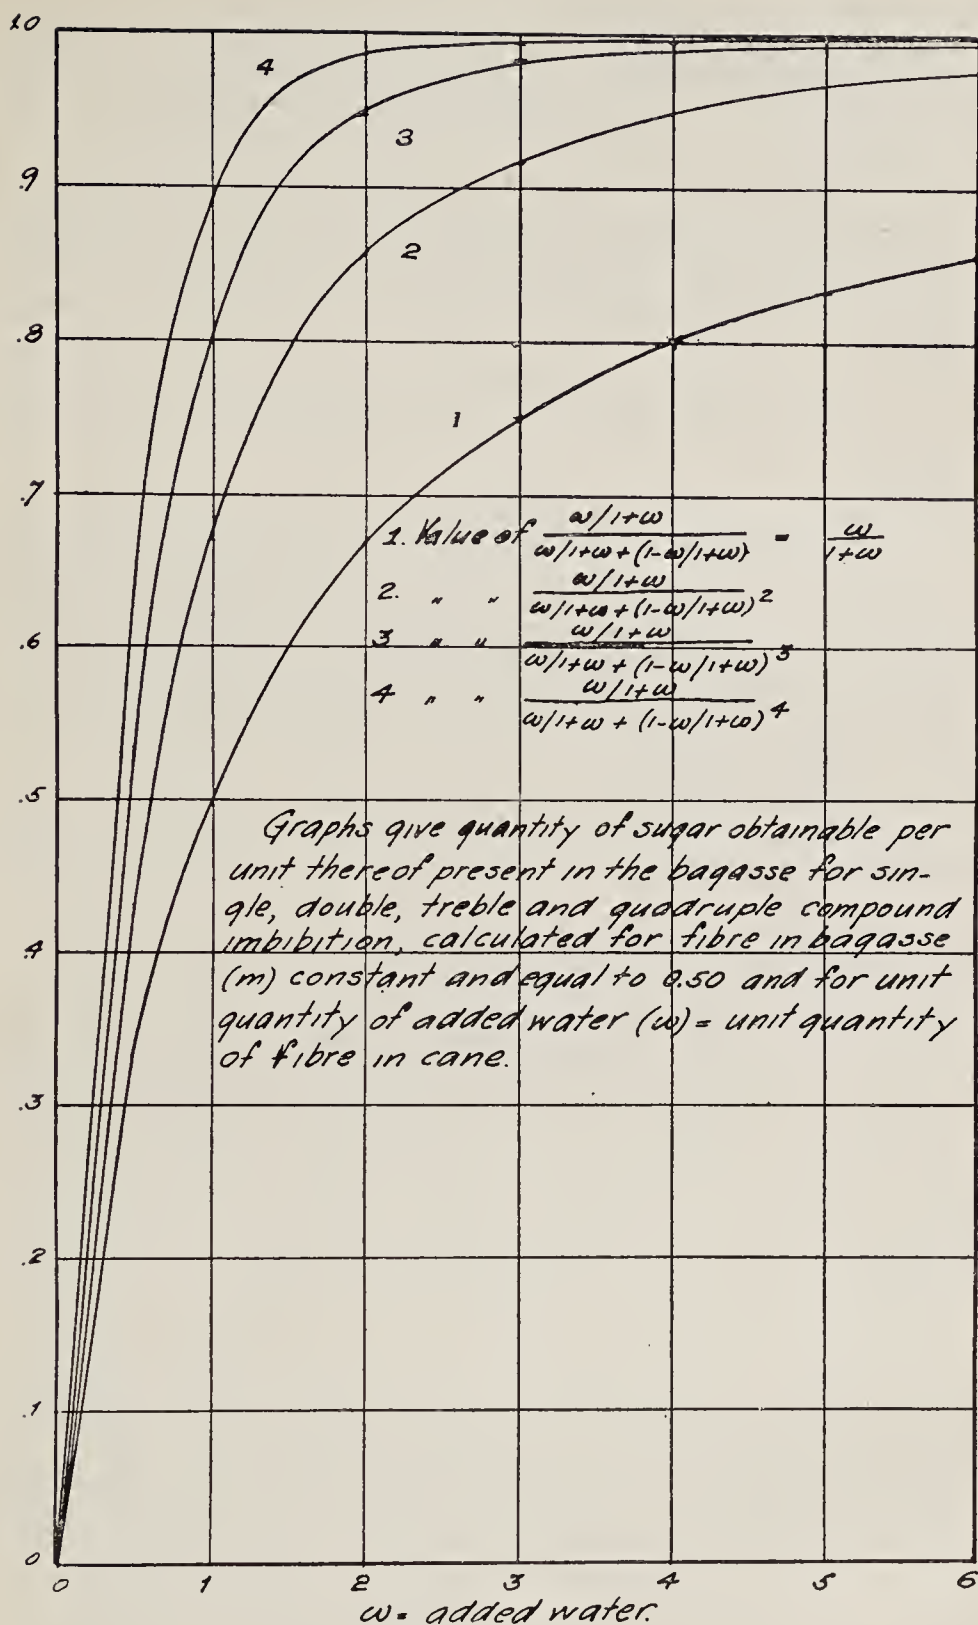 1.0
4
3
.9
2
.8
1
.7
1. Value of (ω/1+ω) / (ω/1+ω + (1-ω/1+ω)) = ω/1+ω
2. " " (ω/1+ω) / (ω/1+ω + (1-ω/1+ω)²)
3 " " (ω/1+ω) / (ω/1+ω + (1-ω/1+ω)³)
.6
4 " " (ω/1+ω) / (ω/1+ω + (1-ω/1+ω)⁴)
.5
Graphs give quantity of sugar obtainable per
unit thereof present in the bagasse for sin-
gle, double, treble and quadruple compound
imbibition, calculated for fibre in bagasse
.4
(m) constant and equal to 0.50 and for unit
quantity of added water (ω) = unit quantity
of fibre in cane.
.3
.2
.1
0
0 1 2 3 4 5 6
ω = added water.